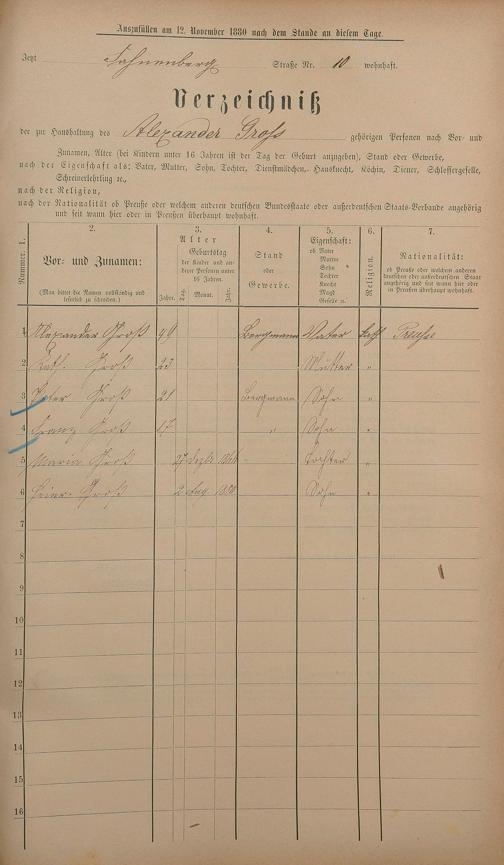 Auszufüllen am 12. November 1880 nach dem Stande an diesem Tage.
Jetzt Fahnenberg Straße Nr. 10 wohnhaft.
Verzeichniß
der zur Haushaltung des Alexander Groß gehörigen Personen nach Vor- und
Zunamen, Alter (bei Kindern unter 16 Jahren ist der Tag der Geburt anzugeben), Stand oder Gewerbe,
nach der Eigenschaft als: Vater, Mutter, Sohn, Tochter, Dienstmädchen, Hausknecht, Köchin, Diener, Schlossergeselle,
Schreinerlehrling ꝛc.,
nach der Religion,
nach der Nationalität ob Preuße oder welchem anderen deutschen Bundesstaate oder außerdeutschen Staats-Verbande angehörig
und seit wann hier oder in Preußen überhaupt wohnhaft.
Nummer. 1.
2.
Vor- und Zunamen:
(Man bittet die Namen vollständig und leserlich zu schreiben.)
3.
Alter
Geburtstag
der Kinder und anderer Personen unter 16 Jahren.
Jahre. Tag. Monat. Jahr.
4.
Stand
oder
Gewerbe.
5.
Eigenschaft:
ob Vater
Mutter
Sohn
Tochter
Knecht
Magd
Geselle
6.
Religion.
7.
Nationalität:
ob Preuße oder welchem anderen
deutschen oder außerdeutschen Staat
angehörig und seit wann hier oder
in Preußen überhaupt wohnhaft.
1 Alexander Groß Bergmann Vater kath Preuße
2 Kath. Groß Mutter "
3 Peter Groß 21 Bergmann Sohn "
4 Franz Groß 17 " Sohn "
5 Maria Groß 27 Dezbr Tochter "
6 Groß 2 Aug Sohn "
7
8
9
10
11
12
13
14
15
16